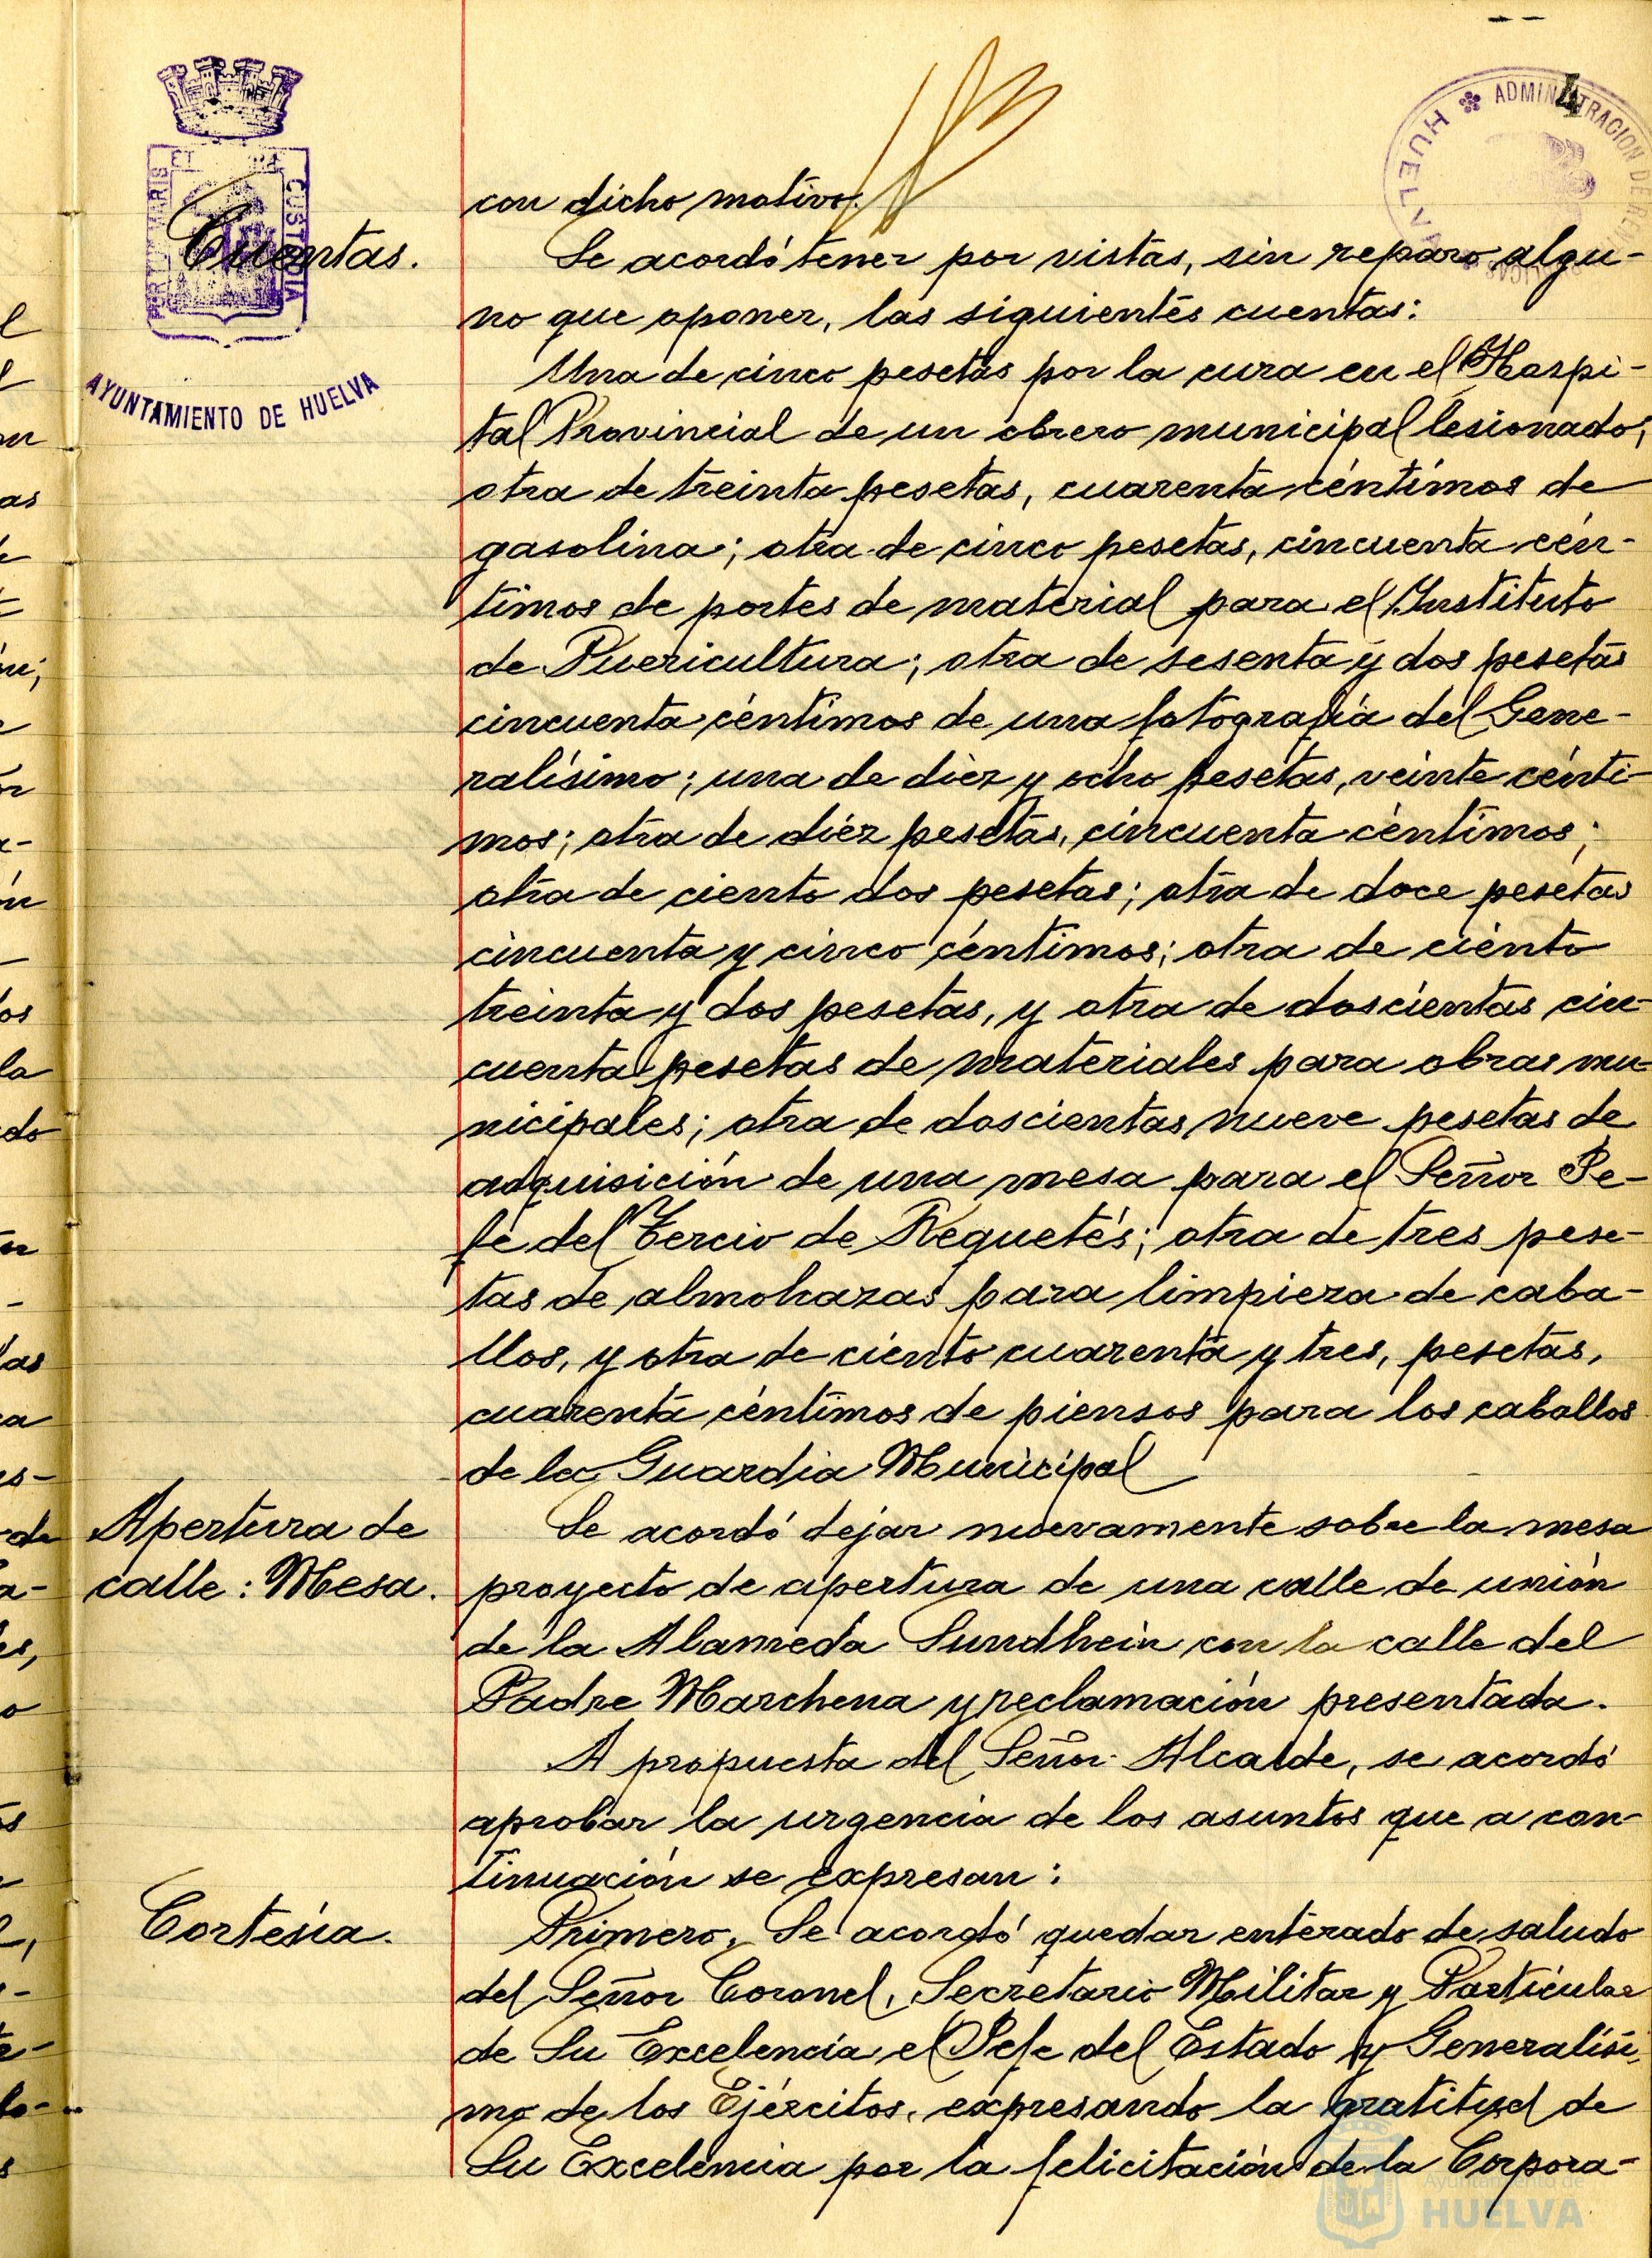 4
ADMINISTRACION DE
HUELVA
PORTUS MARIS ET CUSTODIA
AYUNTAMIENTO DE HUELVA
con dicho motivo.
Cuentas.
Se acordó tener por vistas, sin reparo algu-
no que oponer, las siguientes cuentas:
Una de cinco pesetas por la cura en el Hospi-
tal Provincial de un obrero municipal lesionado;
otra de treinta pesetas, cuarenta céntimos de
gasolina; otra de cinco pesetas, cincuenta cén-
timos de portes de material para el Instituto
de Puericultura; otra de sesenta y dos pesetas
cincuenta céntimos de una fotografía del Gene-
ralísimo; una de diez y ocho pesetas, veinte cénti-
mos; otra de diez pesetas, cincuenta céntimos;
otra de ciento dos pesetas; otra de doce pesetas
cincuenta y cinco céntimos; otra de ciento
treinta y dos pesetas, y otra de doscientas cin-
cuenta pesetas de materiales para obras mu-
nicipales; otra de doscientas nueve pesetas de
adquisición de una mesa para el Señor Je-
fe del Tercio de Requetés; otra de tres pese-
tas de almohazas para limpieza de caba-
llos, y otra de ciento cuarenta y tres, pesetas,
cuarenta céntimos de piensos para los caballos
de la Guardia Municipal
Apertura de
calle: Mesa.
Se acordó dejar nuevamente sobre la mesa
proyecto de apertura de una calle de unión
de la Alameda Sundhein con la calle del
Padre Marchena y reclamación presentada.
A propuesta del Señor Alcalde, se acordó
aprobar la urgencia de los asuntos que a con-
tinuación se expresan:
Cortesía.
Primero, Se acordó quedar enterado de saludo
del Señor Coronel, Secretario Militar y Particular
de Su Excelencia el Jefe del Estado y Generalísi-
mo de los Ejércitos, expresando la gratitud de
Su Excelencia por la felicitación de la Corpora-
Ayuntamiento de
HUELVA